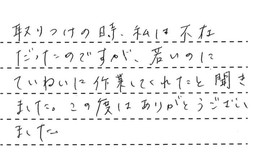 取りつけの時、私は不在
だったのですが、若いのに
ていねいに作業してくれたと聞き
ました。この度はありがとうござい
ました。